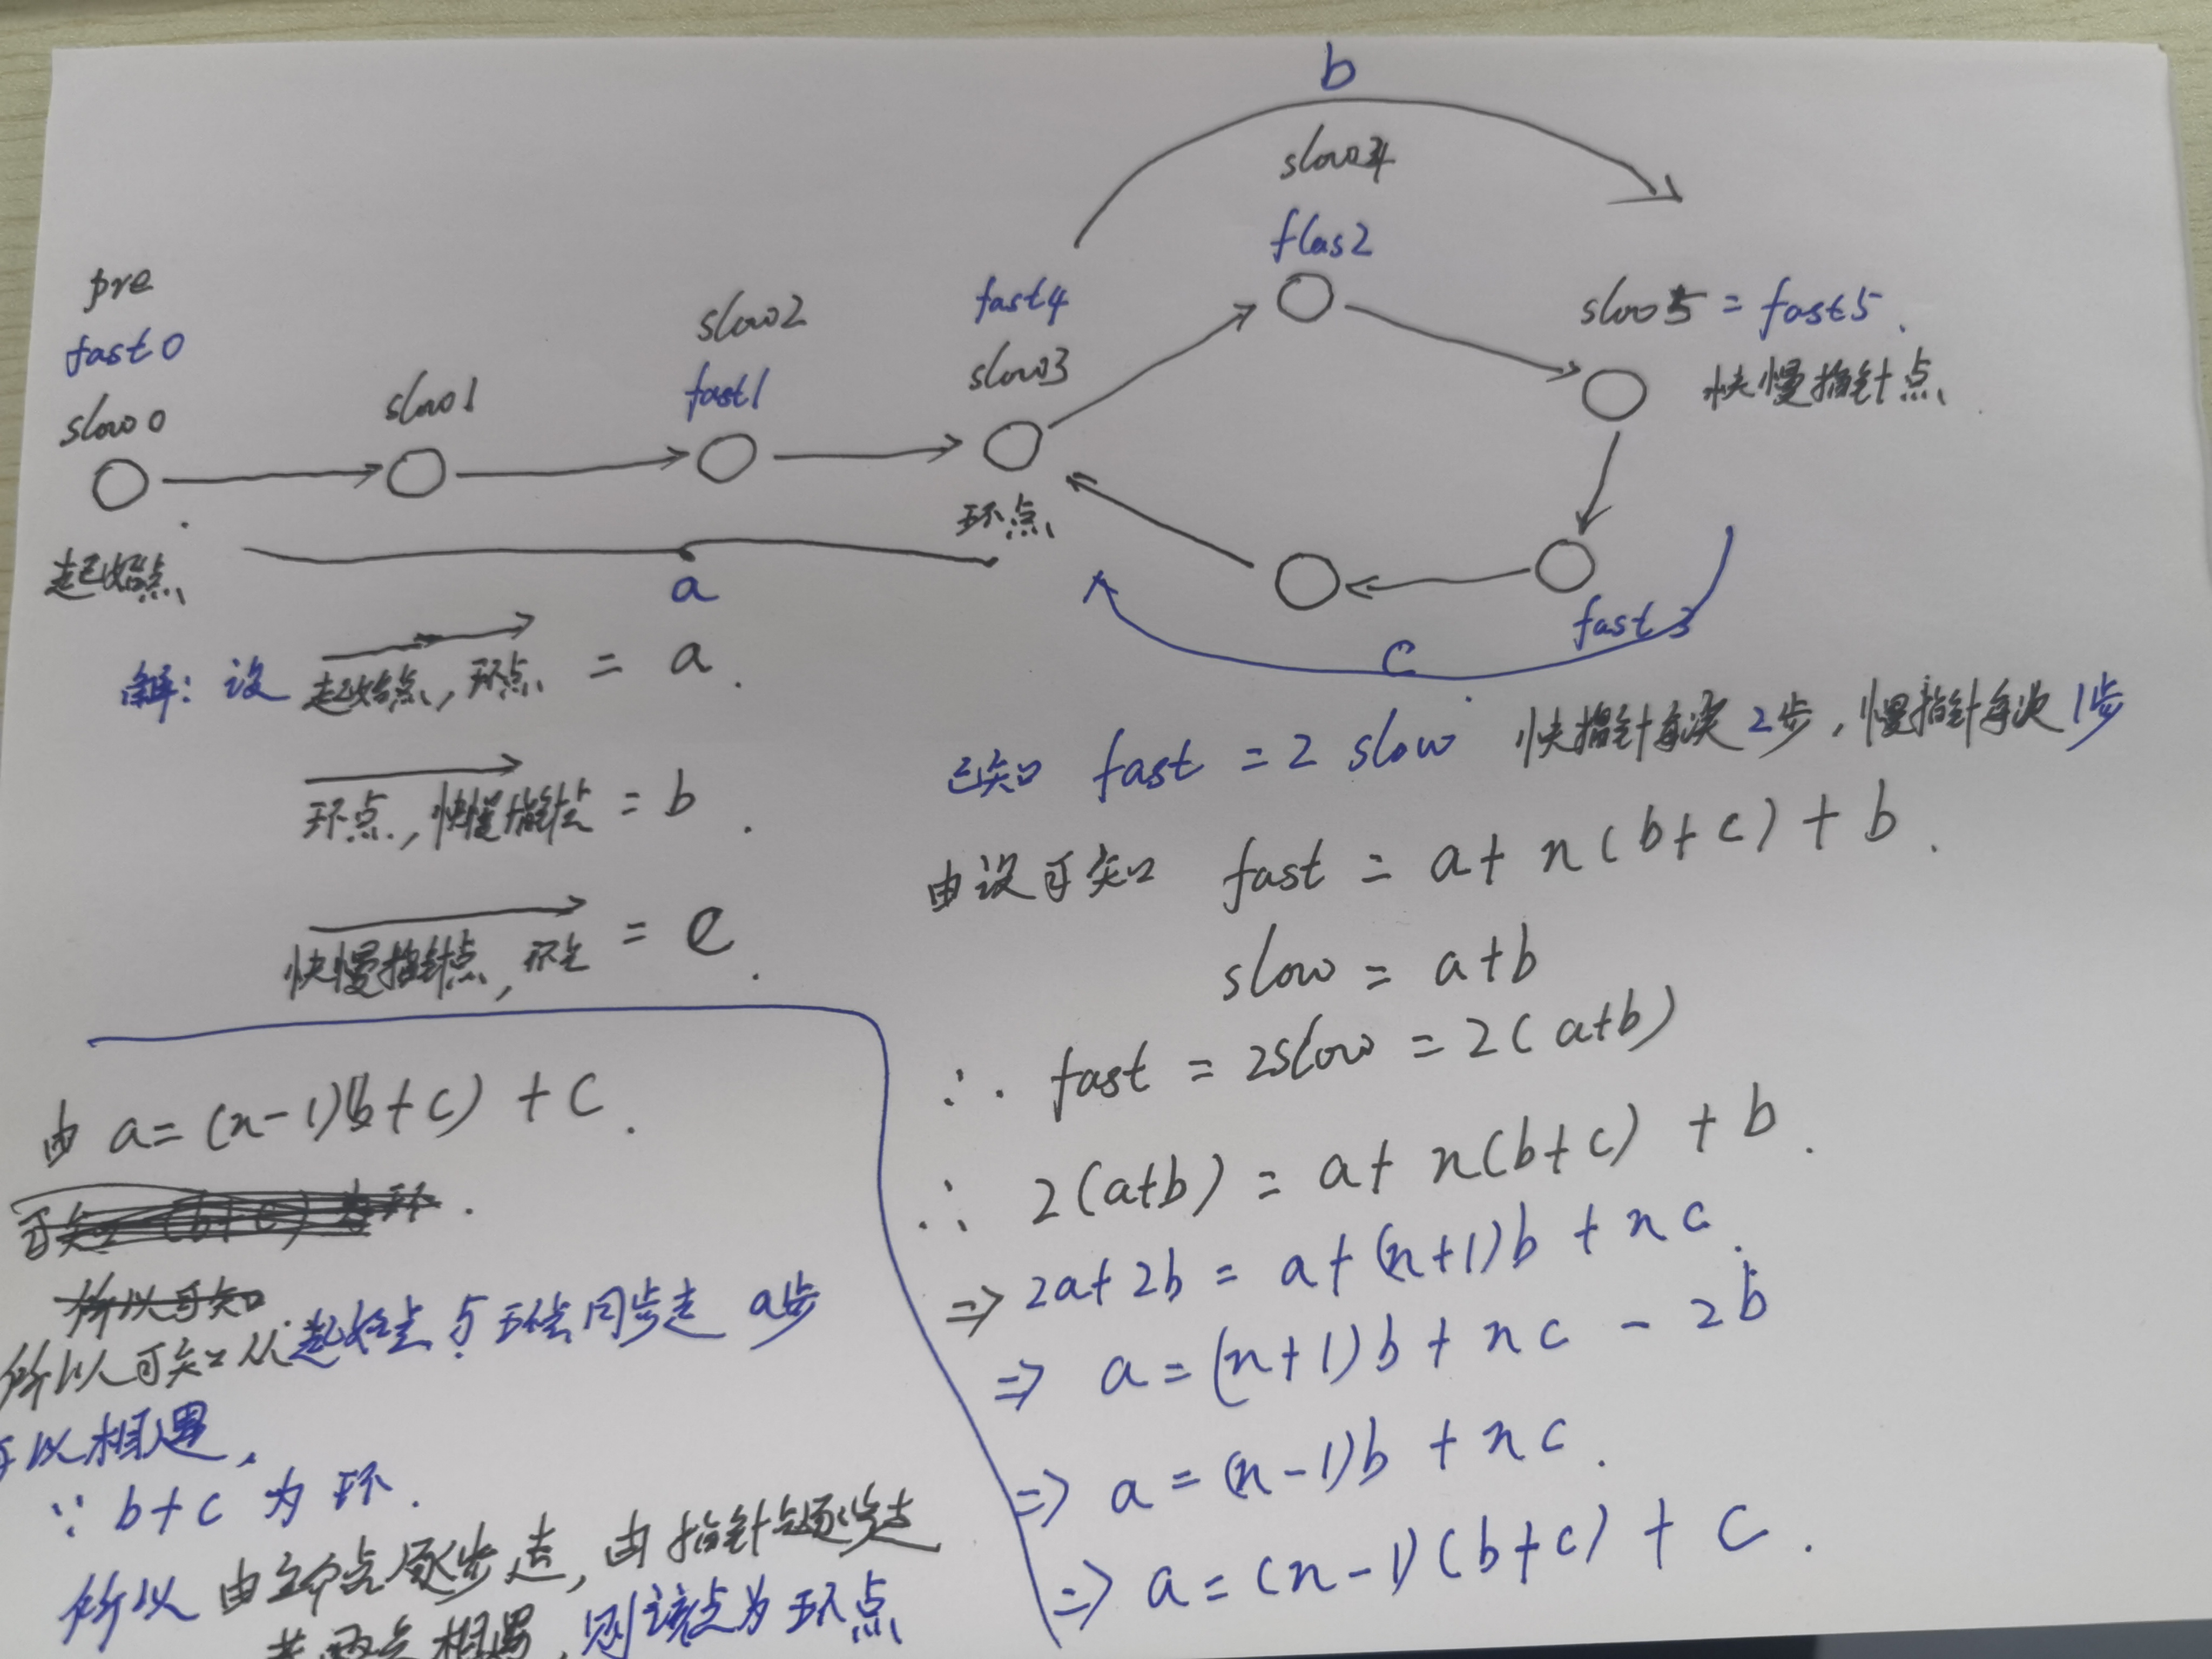 b
slow4
flas2
pre
fast0
slow0
slow1
slow2
fast1
fast4
slow3
slow5 = fast5.
快慢指针点
起始点
a
环点
fast3
c
解: 设 起始点, 环点 = a.
环点, 快慢指针点 = b.
快慢指针点, 环点 = c.
已知 fast = 2 slow 快指针每次2步, 慢指针每次1步
由设可知 fast = a + n(b+c) + b.
slow = a+b
∴ fast = 2slow = 2(a+b)
∴ 2(a+b) = a + n(b+c) + b.
⇒ 2a+2b = a+(n+1)b + nc.
⇒ a = (n+1)b + nc - 2b
⇒ a = (n-1)b + nc.
⇒ a = (n-1)(b+c) + c.
由 a = (n-1)(b+c) + c.
可知 (b+c) 为环.
所以可知
所以可知从起始点与环点同步走 a步
可以相遇,
∵ b+c 为环.
所以 由 点逐步走, 由指针点逐步走
若两点相遇, 则该点为环点